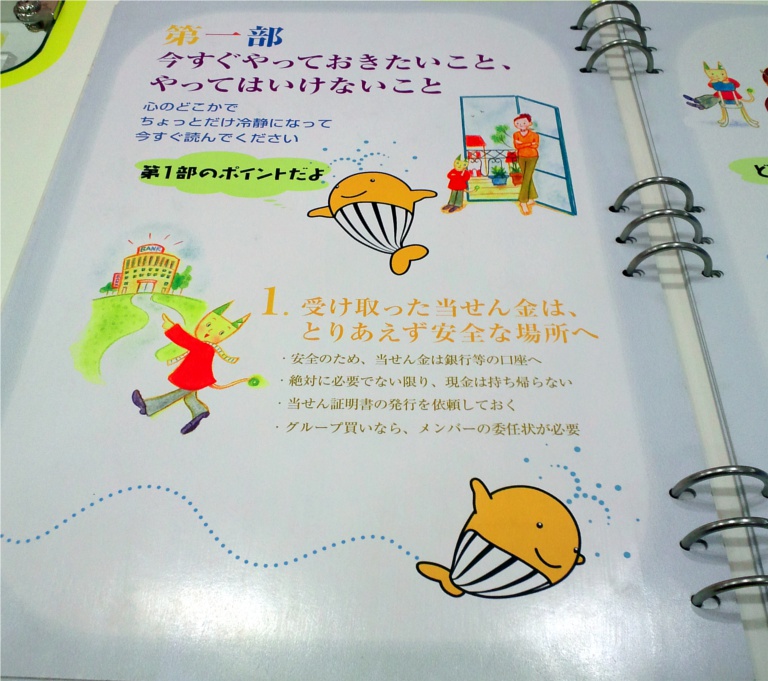 第一部
今すぐやっておきたいこと、
やってはいけないこと
心のどこかで
ちょっとだけ冷静になって
今すぐ読んでください
第1部のポイントだよ
BANK
1. 受け取った当せん金は、
とりあえず安全な場所へ
・安全のため、当せん金は銀行等の口座へ
・絶対に必要でない限り、現金は持ち帰らない
・当せん証明書の発行を依頼しておく
・グループ買いなら、メンバーの委任状が必要